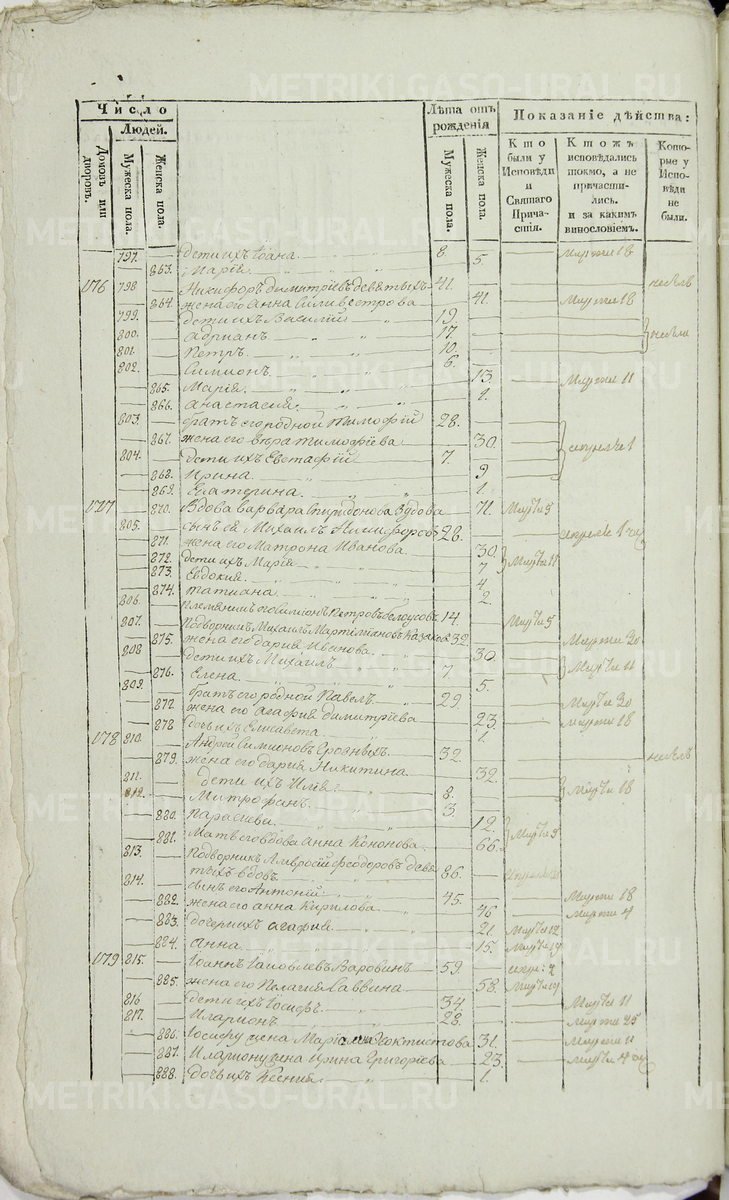 METRIKI.GASO-URAL.RU
Число
Людей.
Домовъ или дворовъ.
Мужеска пола.
Женска пола.
Лѣта отъ рожденія
Мужеска пола.
Женска пола.
Показаніе дѣйства:
Кто были у Исповѣди и Святаго Причастія.
Ктожъ исповѣдались токмо, а не причастились. и за какимъ винословіемъ.
Которые у Исповѣди не были.
797. дети ихъ Іоанъ 8
863. Марія 5. Марта 18
176 798 Никифоръ димитріевъ девятыхъ 41.
864. жена его Анна Силивестрова 41. Марта 18
799. дети ихъ Василій 19.
800. Адрианъ 17
801. Петръ 10.
802. Симионъ 6.
865. Марія 13. Марта 11
866. анастасия. 1.
803. братъ его родной Тимофій 28.
867. жена его вѣра тимофіева 30. апреля 1
804. дети ихъ Евстафій 7.
868. Ирина. 9
869. Екатерина. 1.
177 870. Вдова варвара 71. Марта 5
805. сынъ ея Михаилъ Никифоровъ 28.
871. жена его Матрона Иванова. 30.
872. дети ихъ Марія 7 Марта 11
873. Евдокия 4.
874. татиана 2.
806. племянникъ его Симионъ Петровъ белоусовъ 14. Марта 5
807. Подворникъ Михаилъ Казаков 32. Марта 20
875. жена его дарія Иванова. 30.
808 дети ихъ Михаилъ 7. Марта 11
876. Елена 5.
809. братъ его родной Павелъ 29. Марта 20
877 жена его агафия димитріева 23. марта 18
878 дочь ихъ Елисавета 1.
178 810. Андрей Симионовъ 32.
879. жена его дарія Никитина. 32.
811. дети ихъ Илія 8. Марта 18
812. Митрофанъ 3.
880. Парасива. 12.
881. Мать его вдова Анна Кононова 66. Марта 5
813. Подворникъ Амвросій феодоровъ девятыхъ вдовъ 86.
814. сынъ его Антоній 45. Марта 18
882. жена его анна Кирилова 46
883. дочери ихъ агафия 21. Марта 12
884. анна 15.
179 815. Іоаннъ Іаковлевъ Варовинъ 59.
885. жена его Пелагия Саввина 58.
816 дети ихъ Іосифъ 34. Марта 11
817. Иларионъ 28. марта 25
886. Іосифу жена Марія феоктистова 31. Марта 11
887. Илариону жена Ирина Григоріева 23.
888. дочь ихъ Ксения 1.